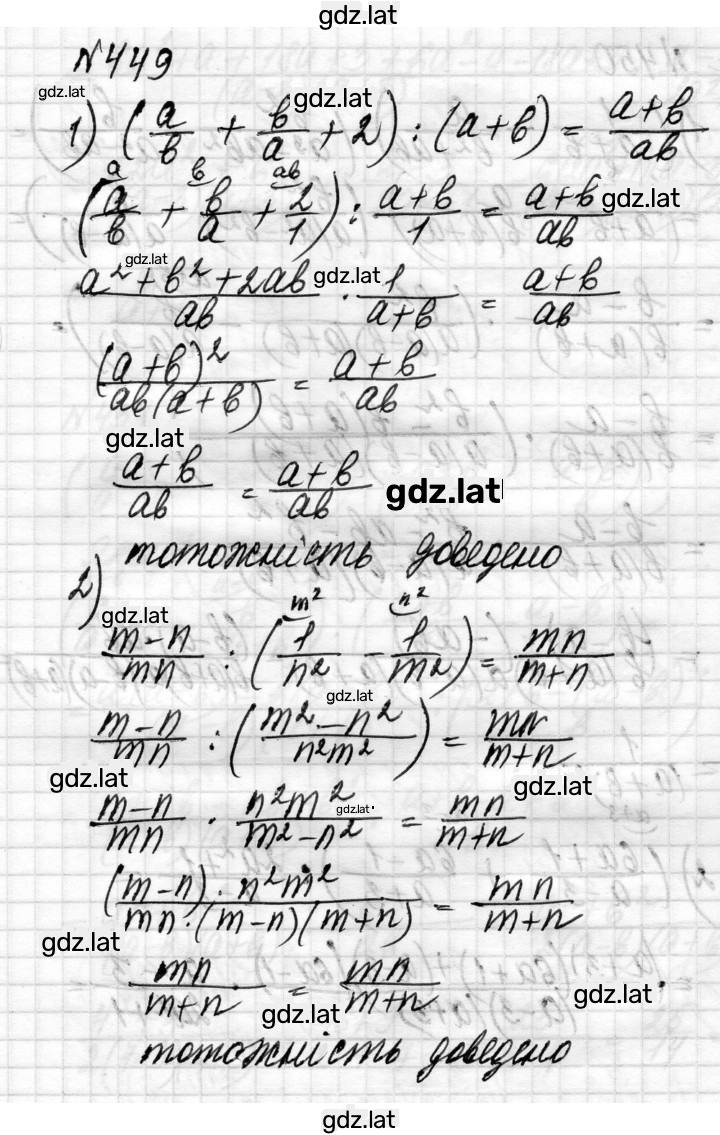 gdz.lat
№449
gdz.lat gdz.lat
1) (a/b + b/a + 2) : (a+b) = (a+b)/(ab)
a b ab
(a/b + b/a + 2/1) : (a+b)/1 = (a+b)/(ab) gdz.lat
gdz.lat gdz.lat
(a²+b²+2ab)/(ab) · 1/(a+b) = (a+b)/(ab)
(a+b)²/(ab(a+b)) = (a+b)/(ab)
gdz.lat
(a+b)/(ab) = (a+b)/(ab) gdz.lat
тотожність доведено
2)
gdz.lat m² n²
(m-n)/(mn) : (1/n² - 1/m²) = (mn)/(m+n)
gdz.lat
(m-n)/(mn) : ((m²-n²)/(n²m²)) = (mn)/(m+n)
gdz.lat gdz.lat
(m-n)/(mn) · (n²m²)/(m²-n²) = (mn)/(m+n)
gdz.lat
((m-n)·n²m²)/(mn·(m-n)(m+n)) = (mn)/(m+n)
gdz.lat
(mn)/(m+n) = (mn)/(m+n)
gdz.lat gdz.lat
тотожність доведено
gdz.lat